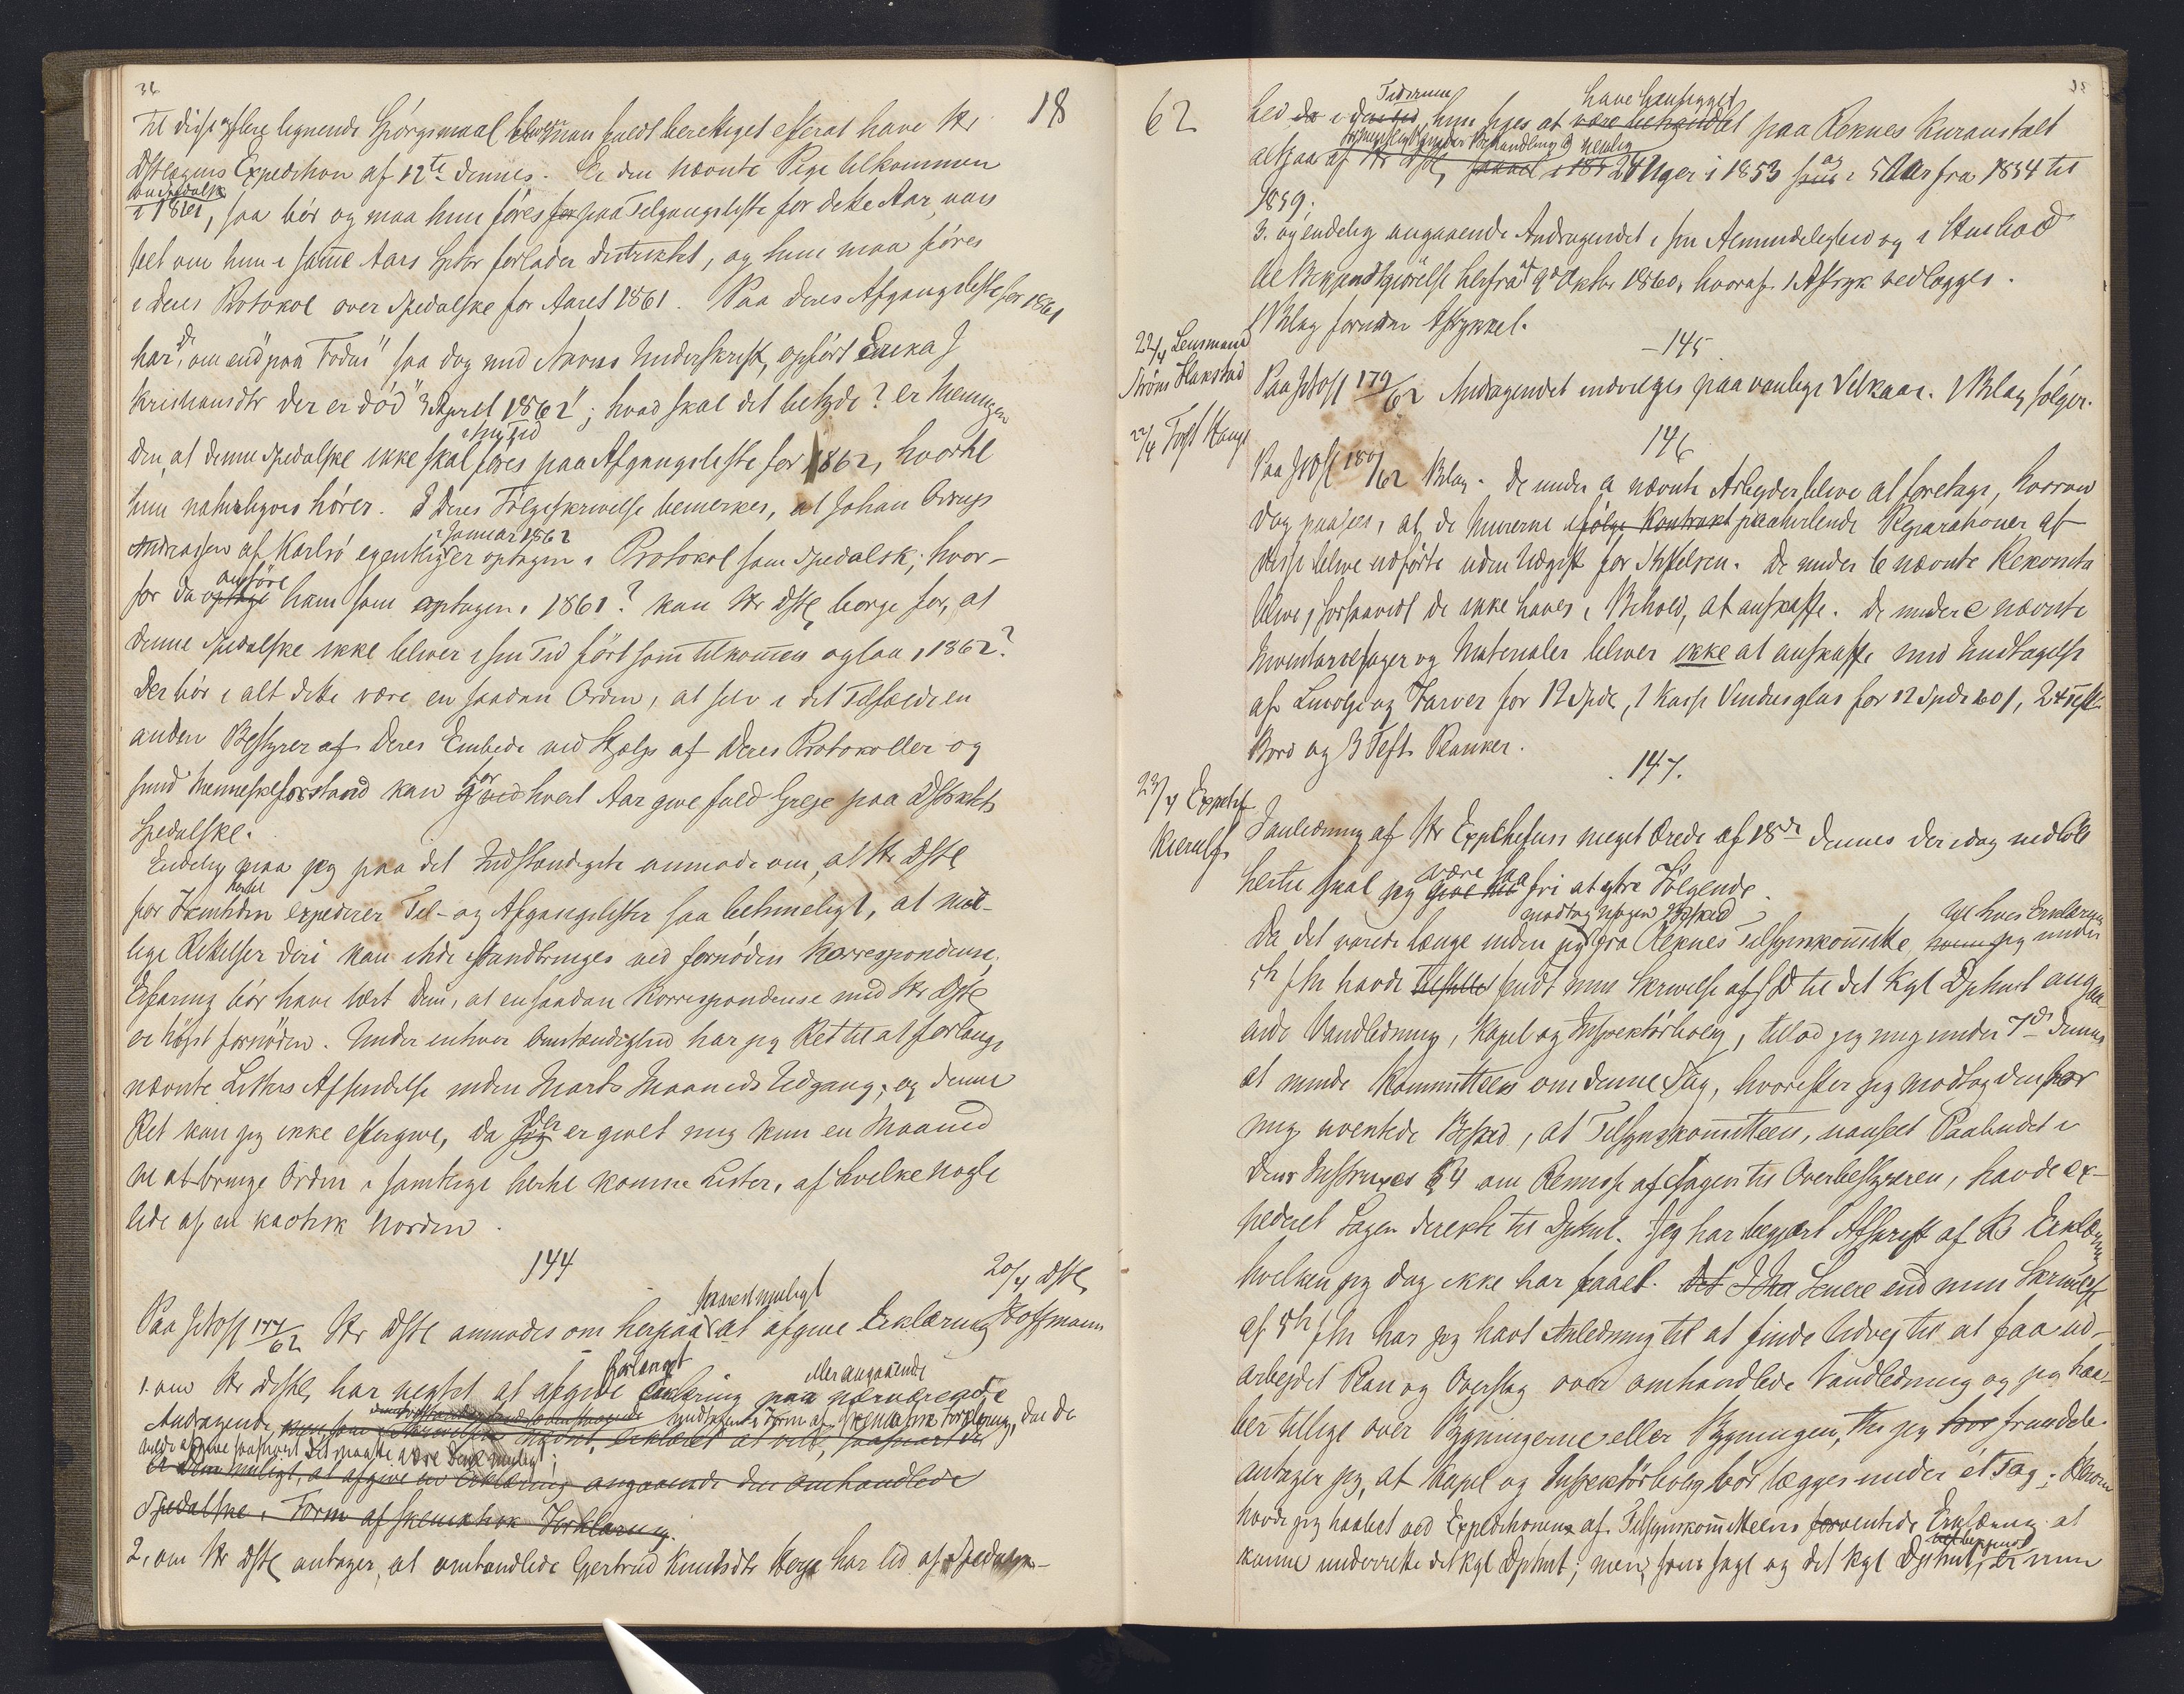 36
18
Til disse og flere lignende Spörgsmaal bliver man fuldt berettiget efterat have Hr
Dstlægens Expedition af 12te dennes. Er den nævnte Pige tilkommen
som spedalsk
i 1861, saa bör og maa hun föres for paa Tilgangsliste for dette Aar, uan
seet om hun i samme Aars Höst forlader Distriktet, og hun maa föres
i Deres Protokol over Spedalske for Aaret 1861. Paa Deres Afgangsliste for 1861
har De, om end "paa Fodus" saa dog med Navns Underskrift, opfört Erika J
Kristiansdtr der er död "3 April 1862"; hvad skal det betyde? er Meningen
i sin Tid
den, at denne Spedalske ikke skal föres paa Afgangsliste for 1862, hvortil
hun naturligvis hörer. I Deres Fölgeskrivelse bemerkes, at Johan Orrups
i Januar 1862
Andreasen af Karlsö egentlig er optagen i Protokol som Spedalsk; hvor-
anföre
for da optage ham som optagen i 1861? kan Hr Dstl borge for, at
denne Spedalske ikke bliver i sin Tid fört som tilkommen ogsaa i 1862?
Der bör i alt dette være en saadan Orden, at selv i det Tilfælde en
anden Bestyrer af Deres Embede ved Hjælp af Deres Protokoller og
sund Menneskeforstand kan for hvert Aar give fuld Greje paa Dstriktets
Spedalske.
Endelig maa jeg paa det Indstændigste anmode om, at Hr Dstl
for Fremtiden expederer Til- og Afgangslister saa betimeligt, at mu-
lige Rettelser deri kan istandbringes ved fornöden Korrespondense;
Erfaring bör have lært Dem, at en saadan Korrespondense med Hr Dstl
er höjst fornöden. Under enhver Omstændighed har jeg Ret til at forlange
nævnte Listers Afsendelse inden Marts Maaneds Udgang; og denne
Ret kan jeg ikke eftergive, da der er givet mig kun en Maaned
til at bringe Orden i samtlige hertil komne Lister, af hvilke nogle
lide af en kaotisk Uorden.
144
20/4 Dstl
Hoffmann
snarest muligt
Paa JNo 177/62 Hr Dstl anmodes om herpaa at afgive Erklæring
forlangt
eller angaaende
1. om Hr Dstl, har negtet at afgive Erklæring paa nærværende
Andragende
vilde afgive saasnart det maatte være Dem muligt;
er Dem muligt, at afgive en Erklæring angaaende den omhandlede
Spedalske i Form af skematisk Forklaring.
2, om Hr Dstl antager, at omhandlede Gjertrud Knutsdtr Berge har lid af Spedalsk-
62
35
Tidsrum
have henligget
hed da i det Tid, hun siges at være behandlet paa Reknes Kuranstalt
altsaa af Hr Dstl, saavel i 185 24 Uger i 1853 som i 5 Aar fra 1854 til
1859;
3. og endelig angaaende Andragendet i sin Almindelighed og i Henhold
til Bekjendtgjörelse herfra af 9de Oktbr 1860, hvoraf 1 Aftryk vedlægges.
1 Bilag foruden Aftrykket.
145
22/4 Lensmand
Ström Hakstad
Paa JNo 179/62 Andragendet indvilges paa vanlige Vilkaar. 1 Bilag fölger.
146
22/4 Fogd Hauge
Paa JNo 180/62 Bilag. De under a nævnte Arbejder blive at foretage, hvorved
dog paasees, at de Murerne ifölge Kontrakt paahvilende Reparationer af
disse blive udförte uden Udgift for Stiftelsen. De under b nævnte Rekvisita
blive, forsaavidt de ikke haves i Behold, at anskaffe. De under c nævnte
Inventariesager og Materialer bliver ikke at anskaffe med Undtagelse
af Linolje og Farver for 12 Spdl, 1 Kasse Vinduesglas for 12 Spdl 60 s, 24 Tylft
Bord og 3 Tylft Planker.
147.
23/4 Expchef
Kierulf
I anledning af Hr Expchefens meget ærede af 18de dennes der idag indlöb
være saa
hertil skal jeg give mig fri at ytre Fölgende.
modtog nogen Besked
til hvis Erklæring
Da det varede længe inden jeg fra Reknes Tilsynskommitte, hvem jeg under
5te f M havde tilstillet sendt min Skrivelse af s D til det Kgl Dptmt angaa-
ende Vandledning, Kapel og Inspektörbolig, tillod jeg mig under 7de dennes
at minde Kommitteen om denne Sag, hvorefter jeg modtog den for
mig uventede Besked, at Tilsynskommitteen, uanseet Paabudet i
dens Instruxes § 4 om Remisse af Sagen til Overbestyreren, havde ex-
pederet Sagen direkte til Dptmt. Jeg har begjært Afskrift af Ks Erklæring
hvilken jeg dog ikke har faaet. Senere end min Skrivelse
af 5te f M har jeg havt Anledning til at finde Udvej til at faa ud-
arbejdet Plan og Overslag over omhandlede Vandledning og jeg haa-
ber tillige over Bygningerne eller Bygningen, thi jeg fremdeles
antager jeg, at Kapel og Inspektörbolig bör lægges under ét Tag; Herom
havde jeg haabet ved Expeditionen af Tilsynskommitteens forventede Erklæring at
kunne underrette det kgl Dptmt; men, som sagt og det kgl Dptmt er min